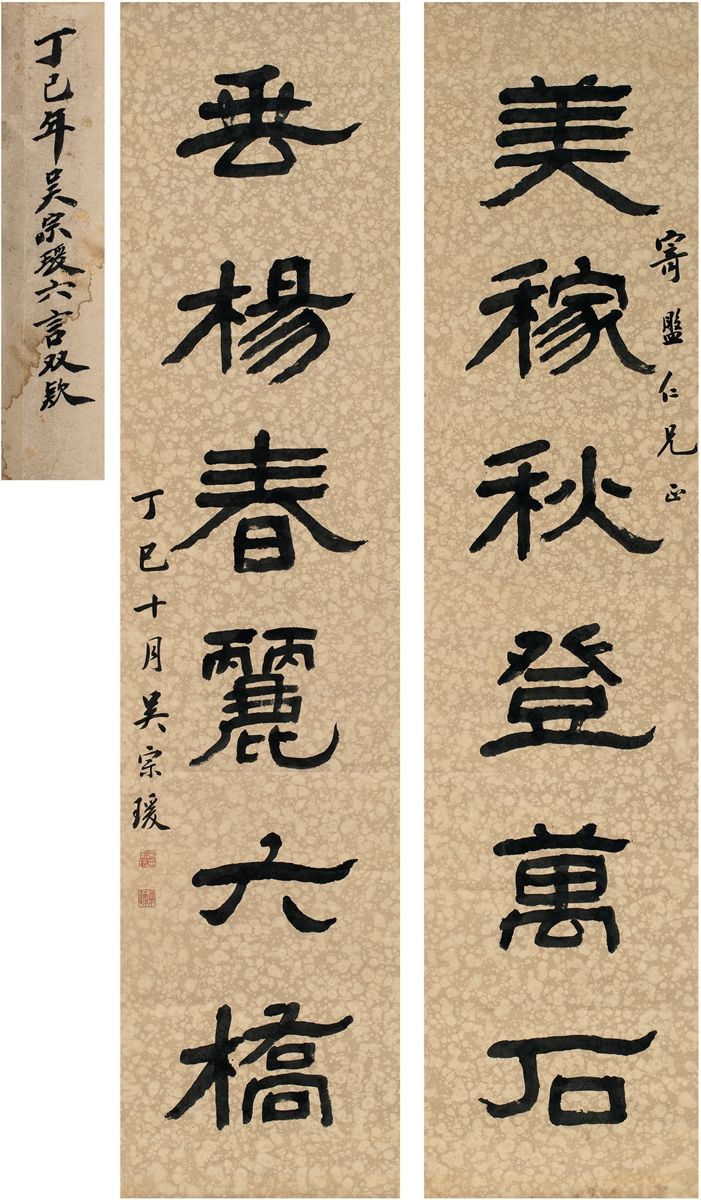 美稼秋登萬石
寄盦仁兄正
垂楊春麗六橋
丁巳十月吳宗瑗
丁巳年吴宗瑗六言双款